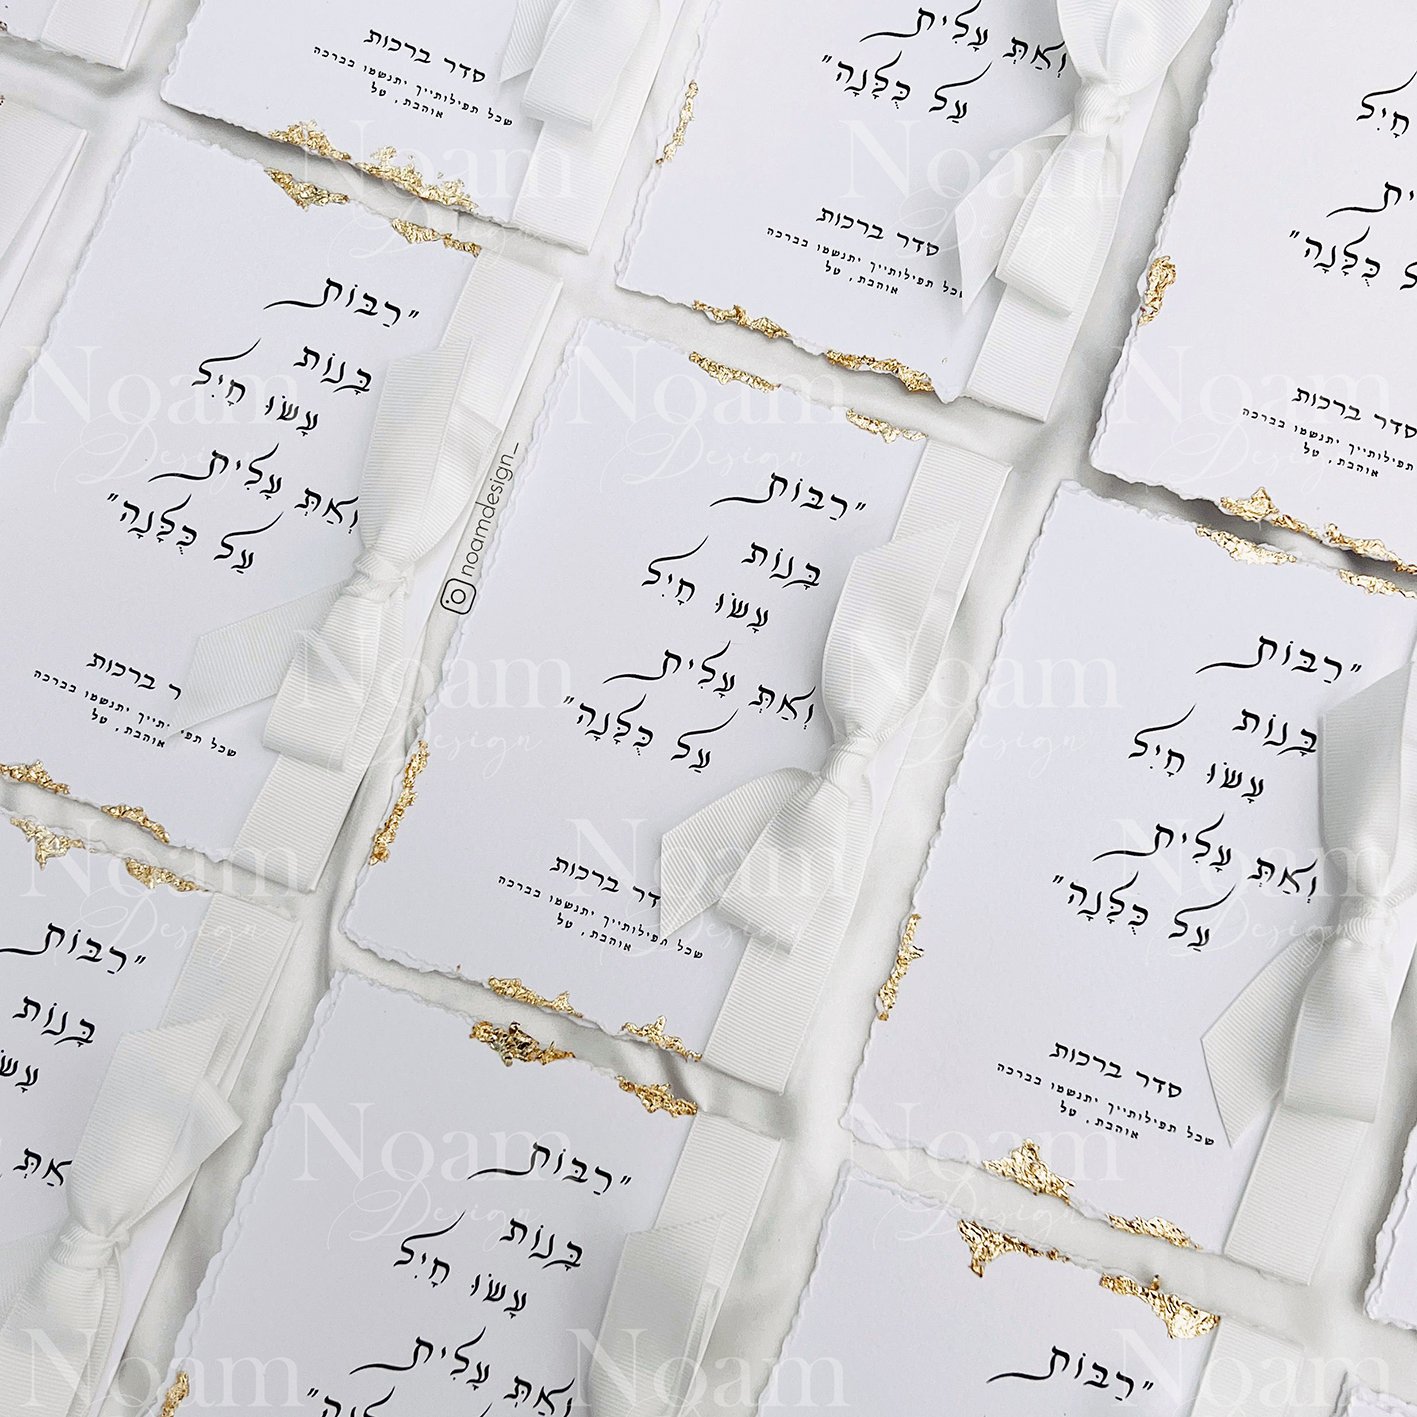 "רַבּוֹת
בָּנוֹת
עָשׂוּ חָיִל
וְאַתְּ עָלִית
עַל כֻּלָּנָה"
סדר ברכות
שכל תפילותייך יתגשמו בברכה
אוהבת, טל
noamdesign_
Noam
Design